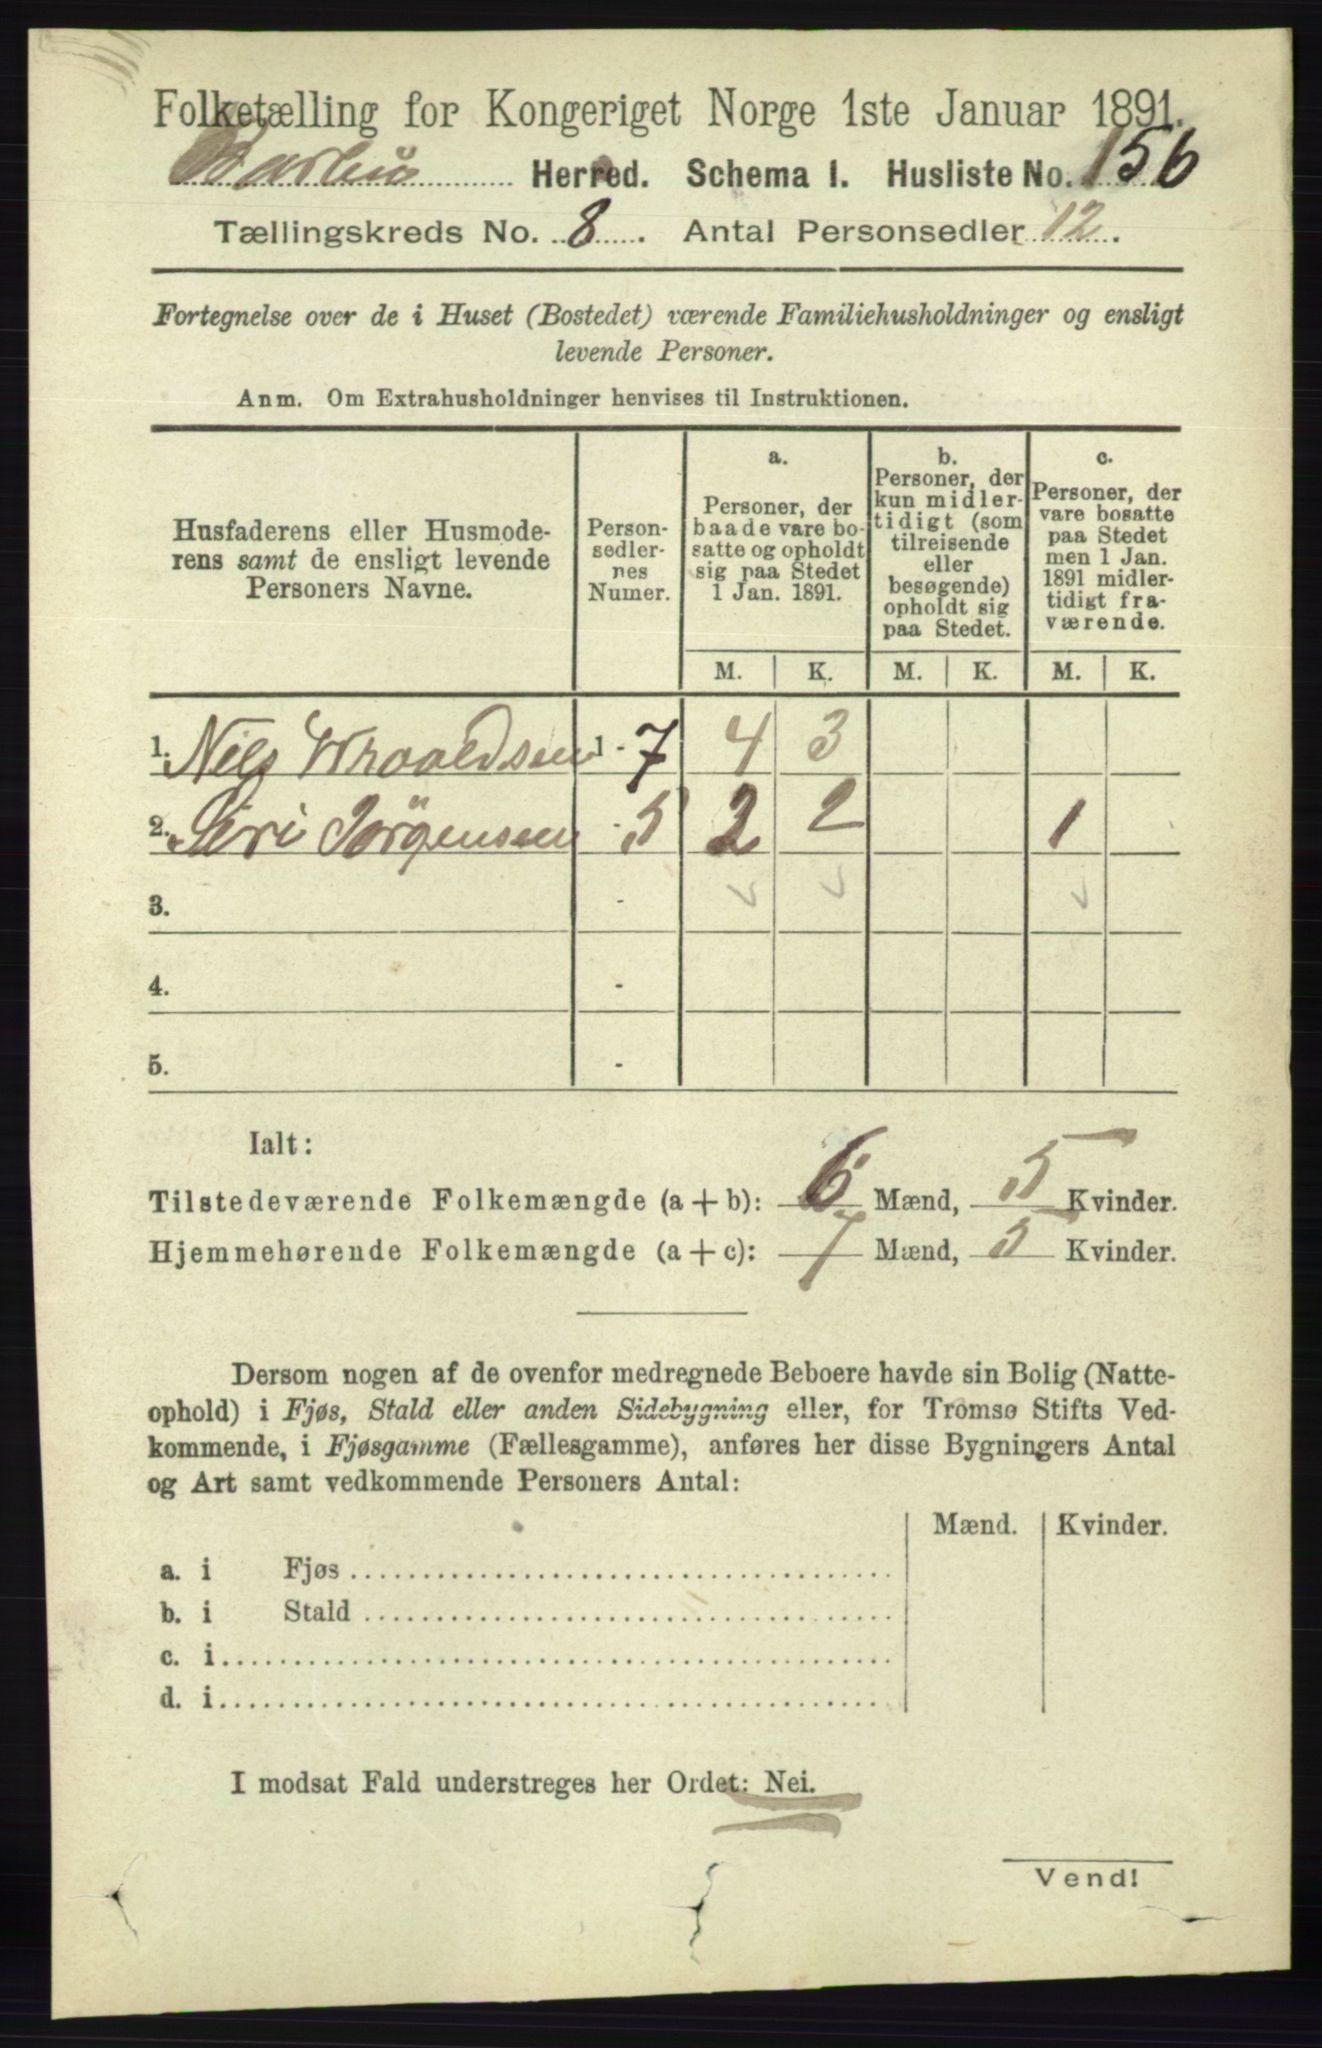 Folketælling for Kongeriget Norge 1ste Januar 1891.
Barbu Herred. Schema I. Husliste No. 156
Tællingskreds No. 8. Antal Personsedler 12.
Fortegnelse over de i Huset (Bostedet) værende Familiehusholdninger og ensligt
levende Personer.
Anm. Om Extrahusholdninger henvises til Instruktionen.
Husfaderens eller Husmode-
rens samt de ensligt levende
Personers Navne.
Person-
sedler-
nes
Numer.
a.
Personer, der
baade vare bo-
satte og opholdt
sig paa Stedet
1 Jan. 1891.
b.
Personer, der
kun midler-
tidigt (som
tilreisende
eller
besøgende)
opholdt sig
paa Stedet.
c.
Personer, der
vare bosatte
paa Stedet
men 1 Jan.
1891 midler-
tidigt fra-
værende.
M. K. M. K. M. K.
1. Nils Wraaldsen 1 - 7 4 3
2. Siri Jörgensen - 5 2 2 1
3. -
4. -
5. -
Ialt:
Tilstedeværende Folkemængde (a + b): 6 Mænd, 5 Kvinder.
Hjemmehørende Folkemængde (a + c): 7 Mænd, 5 Kvinder.
Dersom nogen af de ovenfor medregnede Beboere havde sin Bolig (Natte-
ophold) i Fjøs, Stald eller anden Sidebygning eller, for Tromsø Stifts Ved-
kommende, i Fjøsgamme (Fællesgamme), anføres her disse Bygningers Antal
og Art samt vedkommende Personers Antal:
Mænd. Kvinder.
a. i Fjøs
b. i Stald
c. i
d. i
I modsat Fald understreges her Ordet: Nei.
Vend!